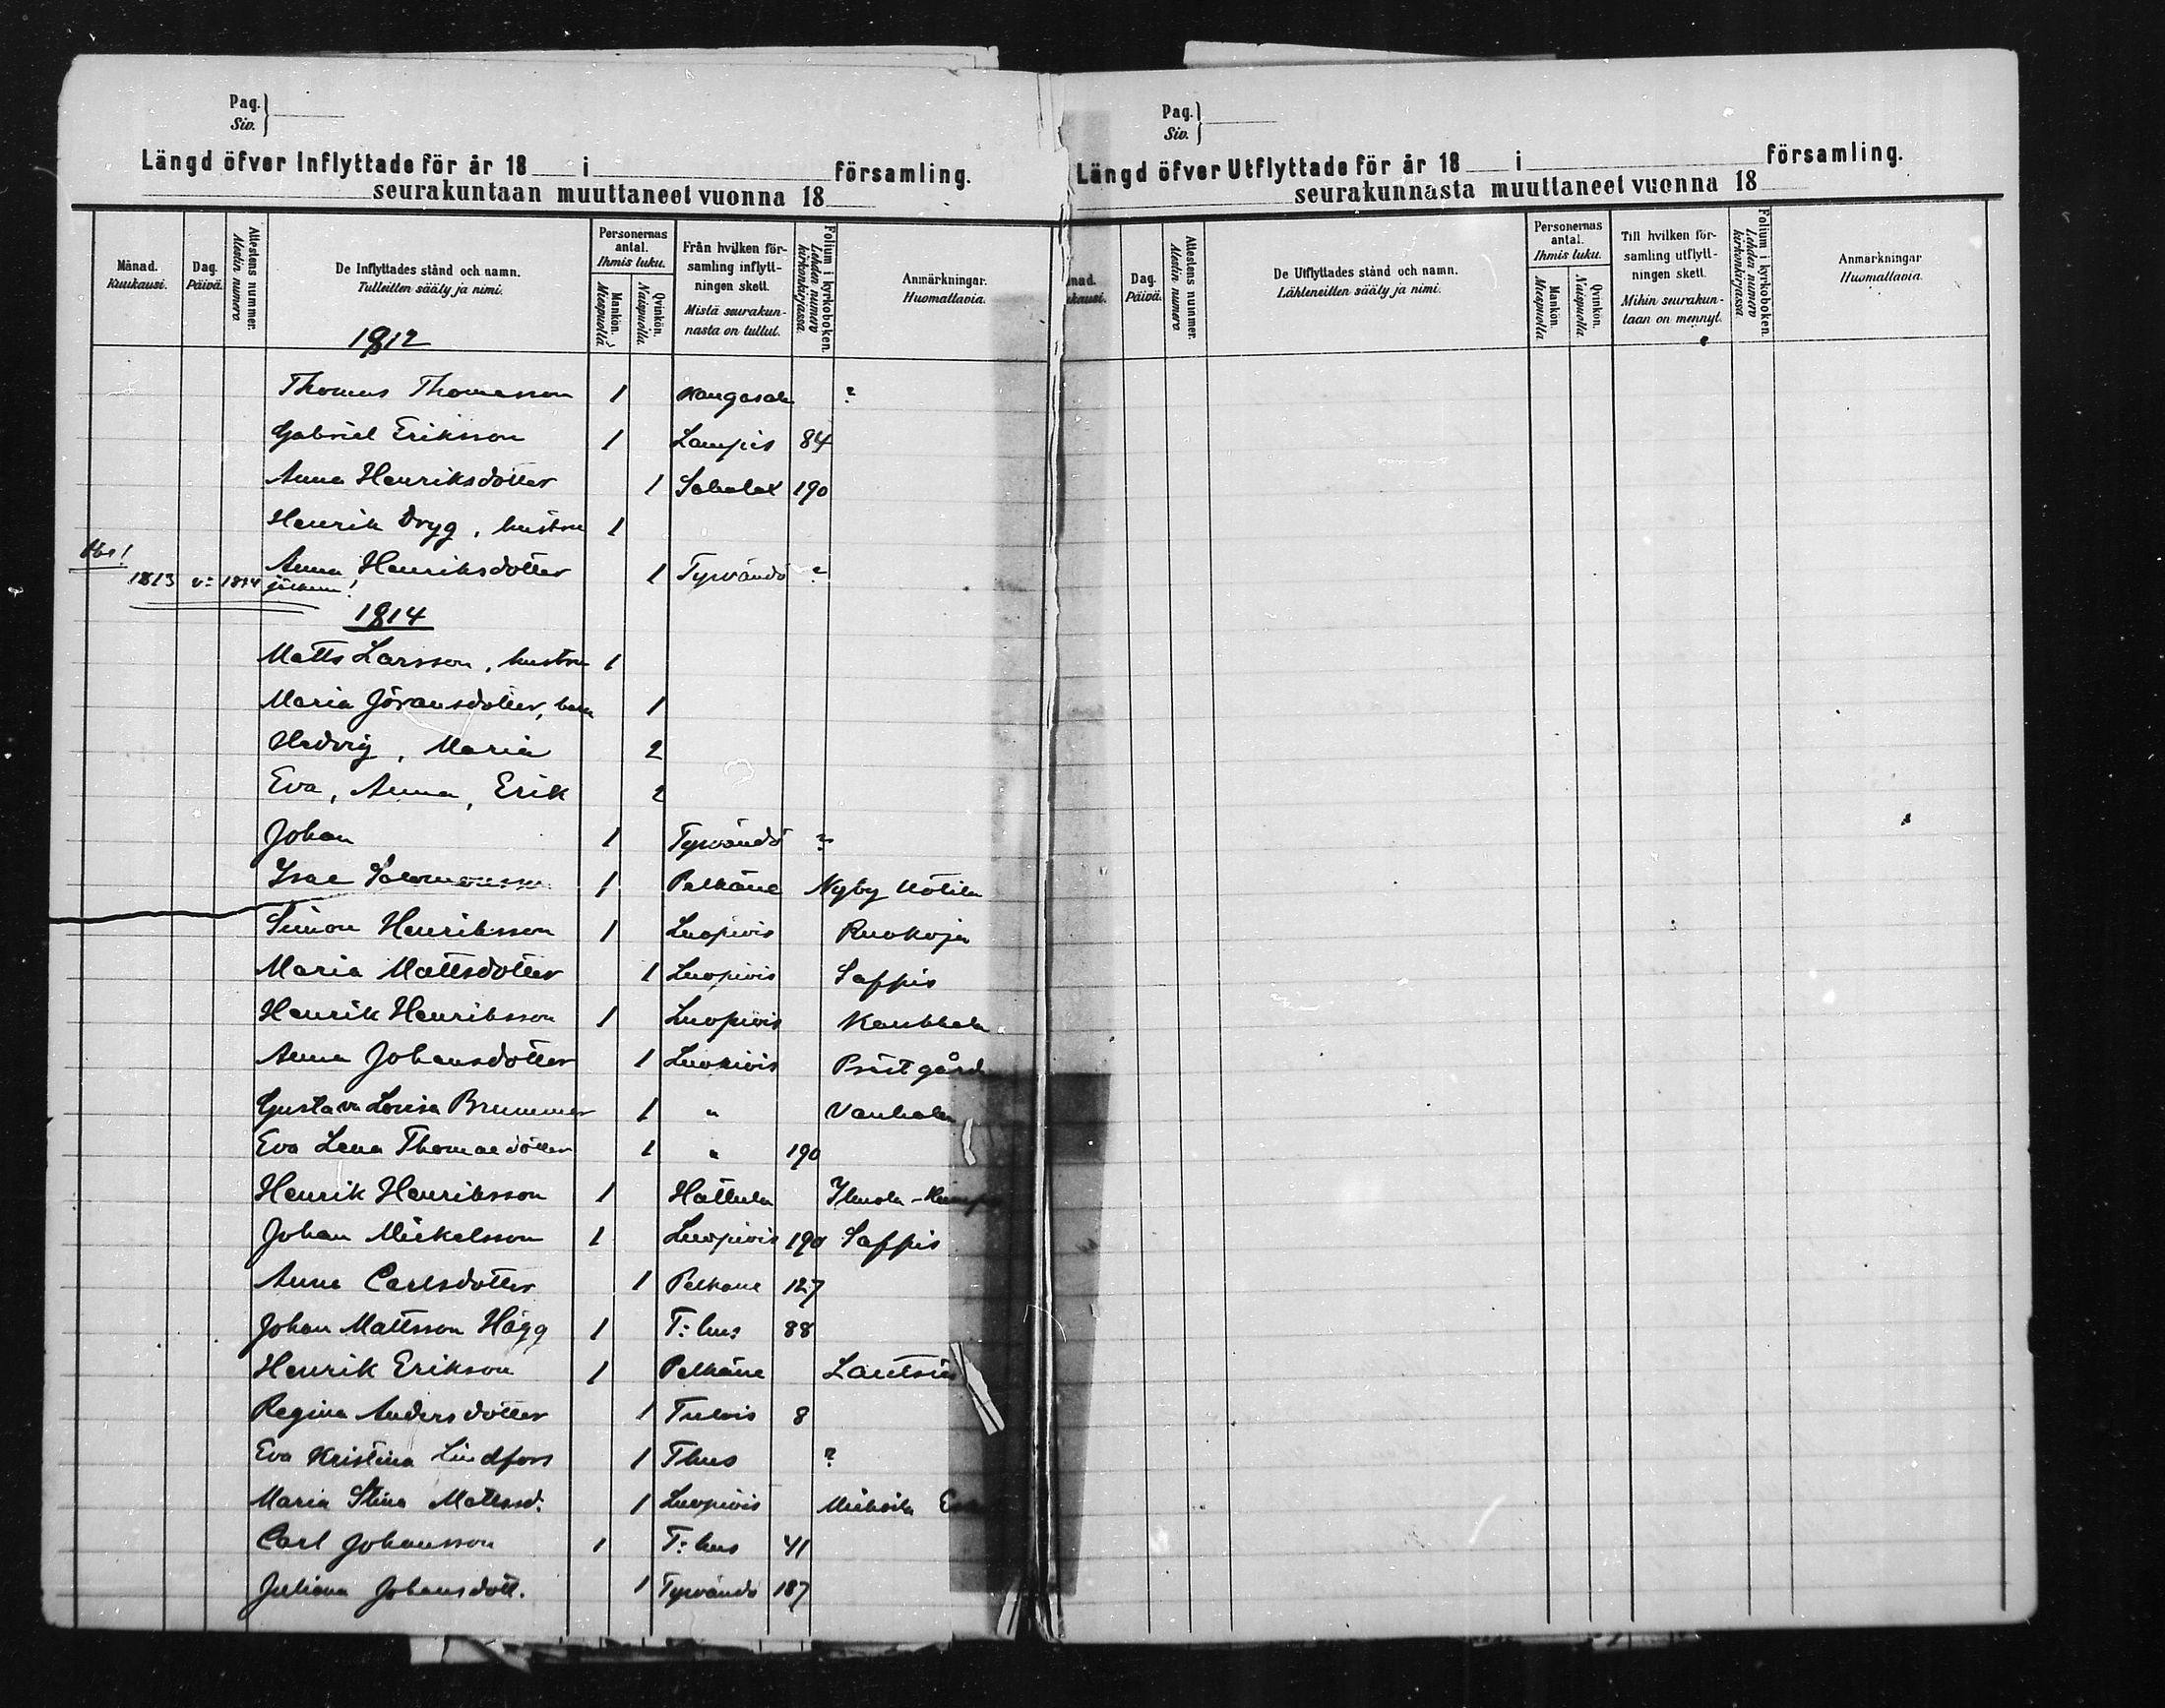 Pag.
Siv.
Längd öfver Inflyttade för år 18 i församling.
seurakuntaan muuttaneet vuonna 18
Månad.
Kuukausi.
Dag.
Päivä.
Attestens nummer.
Alestin numero
De Inflyttades stånd och namn.
Tulleitten sääly ja nimi.
Personernas antal.
Ihmis luku.
Mankön.
Miespuolia.
Qvinkön.
Naispuolia.
Från hvilken för-
samling inflytt-
ningen skett.
Mistä seurakun-
nasta on tullut.
Folium i kyrkoboken.
Lehden numero
kirkonkirjassa.
Anmärkningar.
Huomattavia.
1812
Thomas Thomasson 1 Kangasala ?
Gabriel Eriksson 1 Lampis 84
Anna Henriksdotter 1 Sahalax 190
Henrik Dryg, hustru 1
Obs!
Anna Henriksdotter 1 Tyrvändö ?
1813 o: 1814
1814
Matts Larsson, hustru 1
Maria Göransdotter, barn 1
Hedvig, Maria 2
Eva, Anna, Erik 2
Johan 1 Tyrvändö ?
Isac Salomonsson 1 Pelkäne Nyby Uotila
Simon Henriksson 1 Luopiois Ruokoja
Maria Mattsdotter 1 Luopiois Sappis
Henrik Henriksson 1 Luopiois Kaukkala
Anna Johansdotter 1 Luopiois Prestgård
Gustava Lovisa Brummer 1 " Vanhala
Eva Lena Thomasdotter 1 " 190
Henrik Henriksson 1 Hattula
Johan Mickelsson 1 Luopiois 190 Sappis
Anna Carlsdotter 1 Pelkäne 127
Johan Mattsson Hägg 1 T:hus 88
Henrik Erikson 1 Pelkäne Lautsia
Regina Andersdotter 1 Tulois 8
Eva Kristina Lindfors 1 Thus ?
Maria Stina Mattsd: 1 Luopiois
Carl Johansson 1 T:hus 41
Juliana Johansdott. 1 Tyrvändö 187
Pag.
Siv.
Längd öfver Utflyttade för år 18 i församling.
seurakunnasta muuttaneet vuonna 18
Dag.
Päivä.
Attestens nummer.
Alestin numero
De Utflyttades stånd och namn.
Lähteneitten sääly ja nimi.
Personernas antal.
Ihmis luku.
Mankön.
Miespuolia
Qvinkön.
Naispuolia.
Till hvilken för-
samling utflytt-
ningen skett.
Mihin seurakun-
taan on mennyt.
Folium i kyrkoboken.
Lehden numero
kirkonkirjassa
Anmärkningar
Huomattavia.